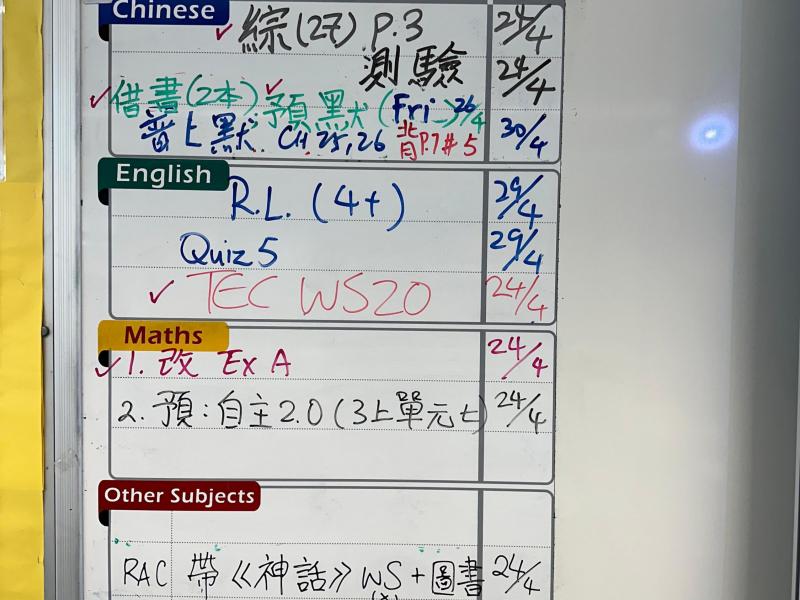 Chinese
✓ 綜(27) P.3 24/4
測驗 24/4
✓借書(2本) ✓預默(Fri_) 26/4
普上默 CH 25,26 背P.7#5 30/4
English
R.L. (4+) 29/4
Quiz 5 29/4
✓ TEC WS20 24/4
Maths
✓1. 改 Ex A 24/4
2. 預:自主2.0(3上單元七) 24/4
Other Subjects
RAC 帶《神話》WS+圖書 24/4
(x)